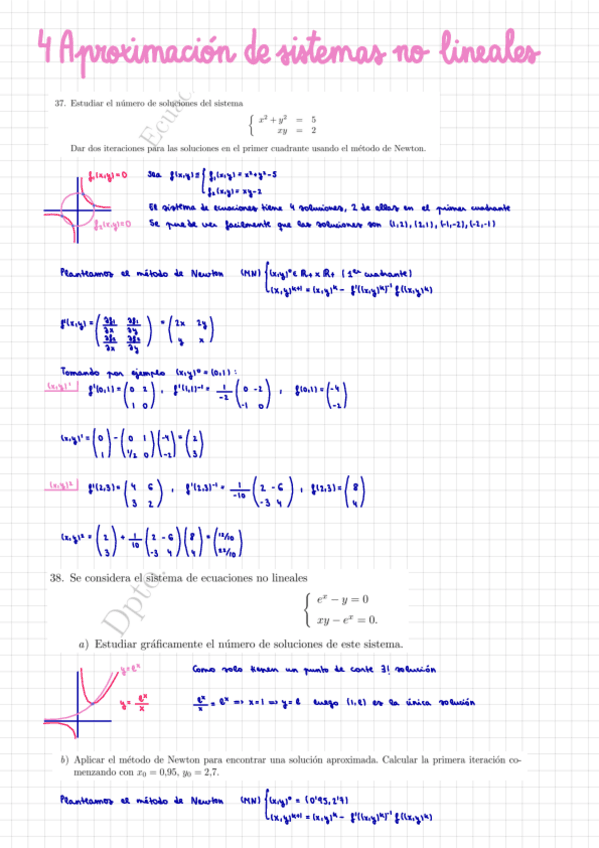 4 Aproximación de sistemas no lineales
Ecuac
37. Estudiar el número de soluciones del sistema
{ x² + y² = 5
xy = 2
Dar dos iteraciones para las soluciones en el primer cuadrante usando el método de Newton.
f₁(x,y)=0
f₂(x,y)=0
Sea f(x,y) = { f₁(x,y) = x²+y²-5
f₂(x,y) = xy-2
El sistema de ecuaciones tiene 4 soluciones, 2 de ellas en el primer cuadrante
Se puede ver facilmente que las soluciones son (1,2), (2,1), (-1,-2), (-2,-1)
Planteamos el método de Newton (MN) { (x,y)⁰ ∈ R₊ x R₊ (1er cuadrante)
(x,y)ᵏ⁺¹ = (x,y)ᵏ - f'((x,y)ᵏ)⁻¹ f((x,y)ᵏ)
f'(x,y) = ( ∂f₁/∂x ∂f₁/∂y ; ∂f₂/∂x ∂f₂/∂y ) = ( 2x 2y ; y x )
Tomando por ejemplo (x,y)⁰ = (0,1) :
(x,y)¹ f'(0,1) = ( 0 2 ; 1 0 ) , f'(1,1)⁻¹ = 1/-2 ( 0 -2 ; -1 0 ) , f(0,1) = ( -4 ; -2 )
(x,y)¹ = ( 0 ; 1 ) - ( 0 1 ; 1/2 0 ) ( -4 ; -2 ) = ( 2 ; 3 )
(x,y)² f'(2,3) = ( 4 6 ; 3 2 ) , f'(2,3)⁻¹ = 1/-10 ( 2 -6 ; -3 4 ) , f(2,3) = ( 8 ; 4 )
(x,y)² = ( 2 ; 3 ) + 1/10 ( 2 -6 ; -3 4 ) ( 8 ; 4 ) = ( 12/10 ; 22/10 )
Dpto.
38. Se considera el sistema de ecuaciones no lineales
{ eˣ − y = 0
xy − eˣ = 0.
a) Estudiar gráficamente el número de soluciones de este sistema.
y=eˣ
y = eˣ/x
Como solo tienen un punto de corte ∃! solución
eˣ/x = eˣ => x=1 => y=e luego (1,e) es la única solución
b) Aplicar el método de Newton para encontrar una solución aproximada. Calcular la primera iteración co-
menzando con x₀ = 0,95, y₀ = 2,7.
Planteamos el método de Newton (MN) { (x,y)⁰ = (0'95, 2'7)
(x,y)ᵏ⁺¹ = (x,y)ᵏ - f'((x,y)ᵏ)⁻¹ f((x,y)ᵏ)